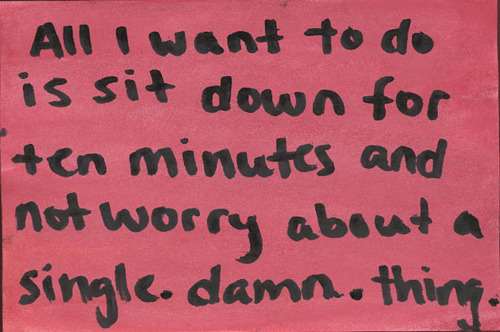 All I want to do
is sit down for
ten minutes and
not worry about a
single. damn. thing.